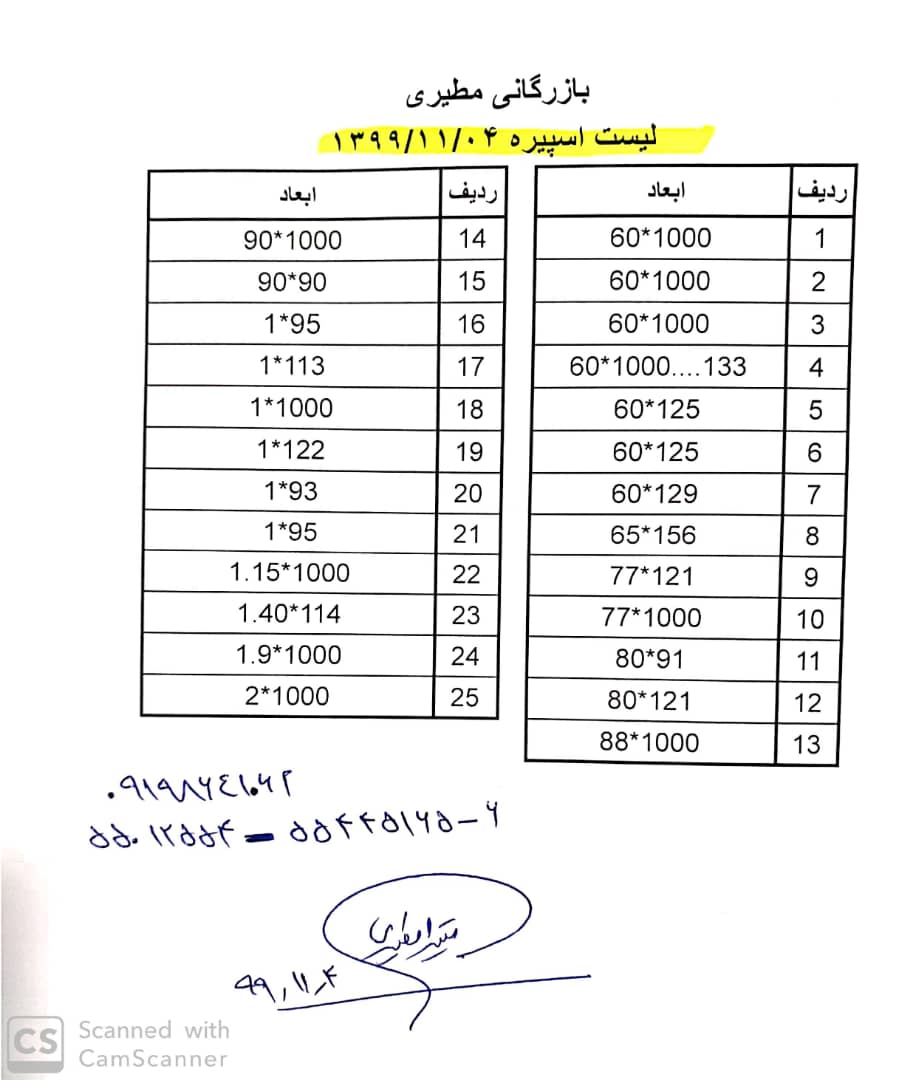 بازرگانی مطیری
لیست اسپیره ۱۳۹۹/۱۱/۰۴
ردیف ابعاد
1 60*1000
2 60*1000
3 60*1000
4 60*1000....133
5 60*125
6 60*125
7 60*129
8 65*156
9 77*121
10 77*1000
11 80*91
12 80*121
13 88*1000
ردیف ابعاد
14 90*1000
15 90*90
16 1*95
17 1*113
18 1*1000
19 1*122
20 1*93
21 1*95
22 1.15*1000
23 1.40*114
24 1.9*1000
25 2*1000
۰۹۱۹۸۷۴۱۰۷۲
۵۵۰۱۲۵۵۴ - ۵۵۴۴۵۱۷۵-۶
مطیری
۹۹,۱۱,۴
CS Scanned with
CamScanner